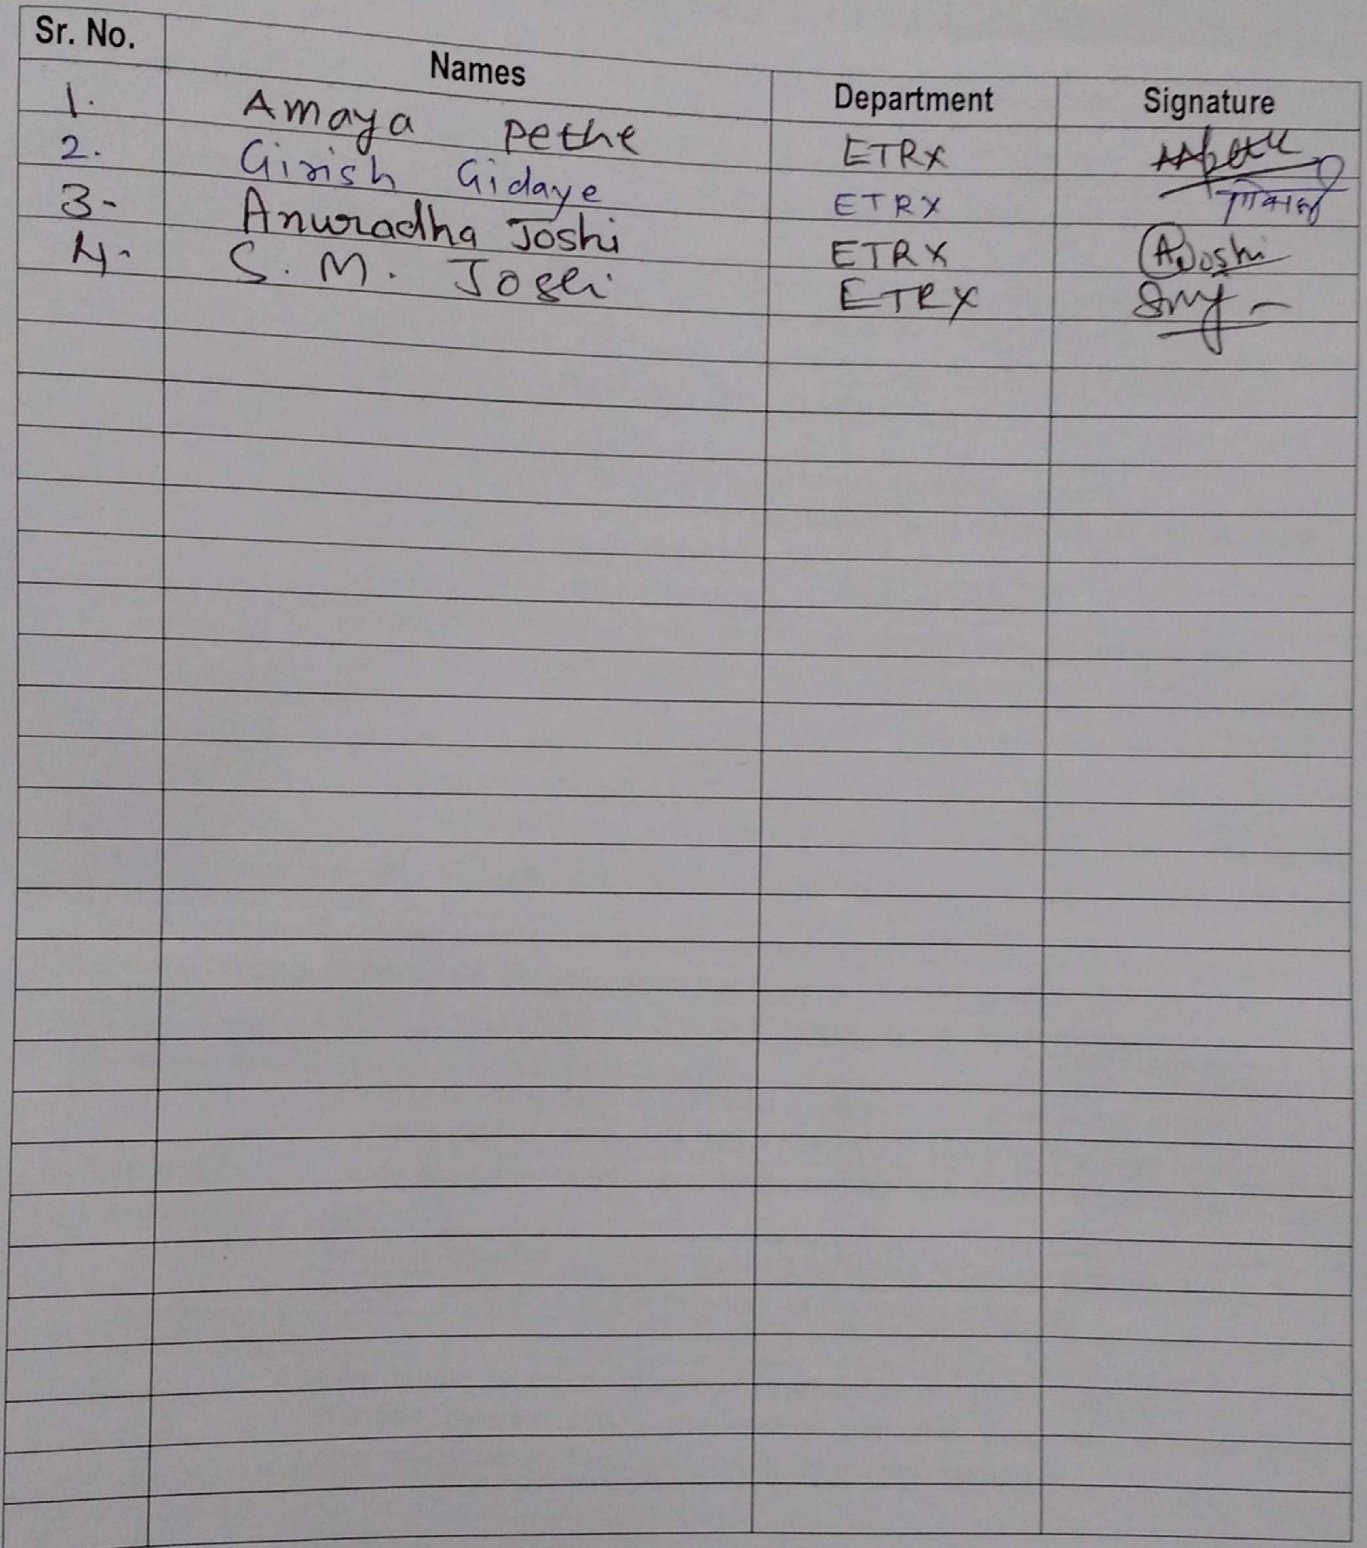 Sr. No. Names Department Signature
1. Amaya Pethe ETRX
2. Girish Gidaye ETRX
3- Anuradha Joshi ETRX AJoshi
4. S. M. Joshi ETRX